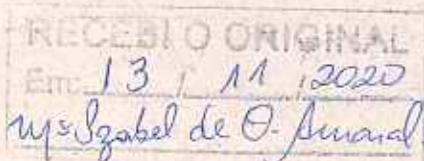 RECEBI O ORIGINAL
Em: 13 / 11 / 2020
Mª Izabel de O. Amaral